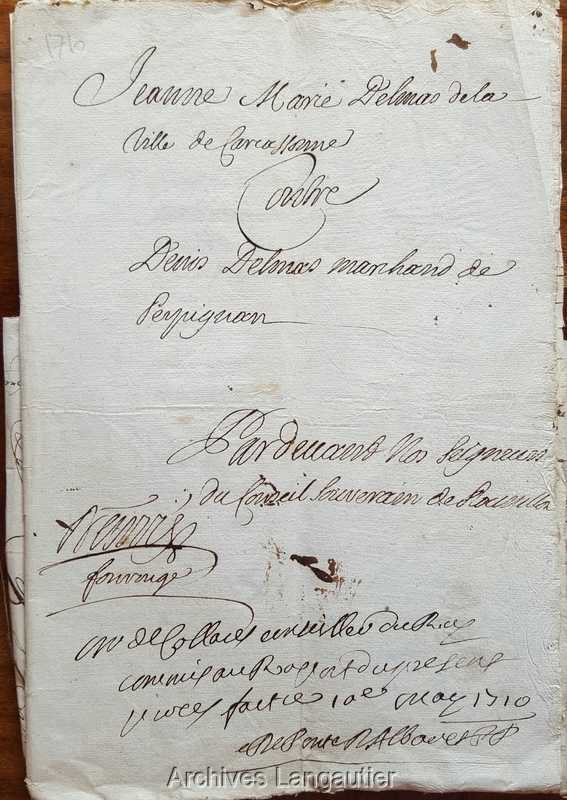 1710
Jeanne Marie Delmas de la
Ville de Carcassonne
Contre
Denis Delmas marchand de
Perpignan
Pardeuant Nos Seigneurs
du Conseil Souverain de
conseiller du Roy
commis au Raport du present
proces fait ce 10e may 1710
Archives Langautier